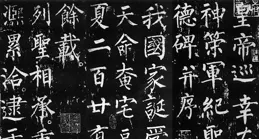 皇帝巡幸左
神策軍紀聖
德碑并序
我國家誕受
天命奄宅区
夏二百廿有
餘載
列聖相承重
熙累洽逮于